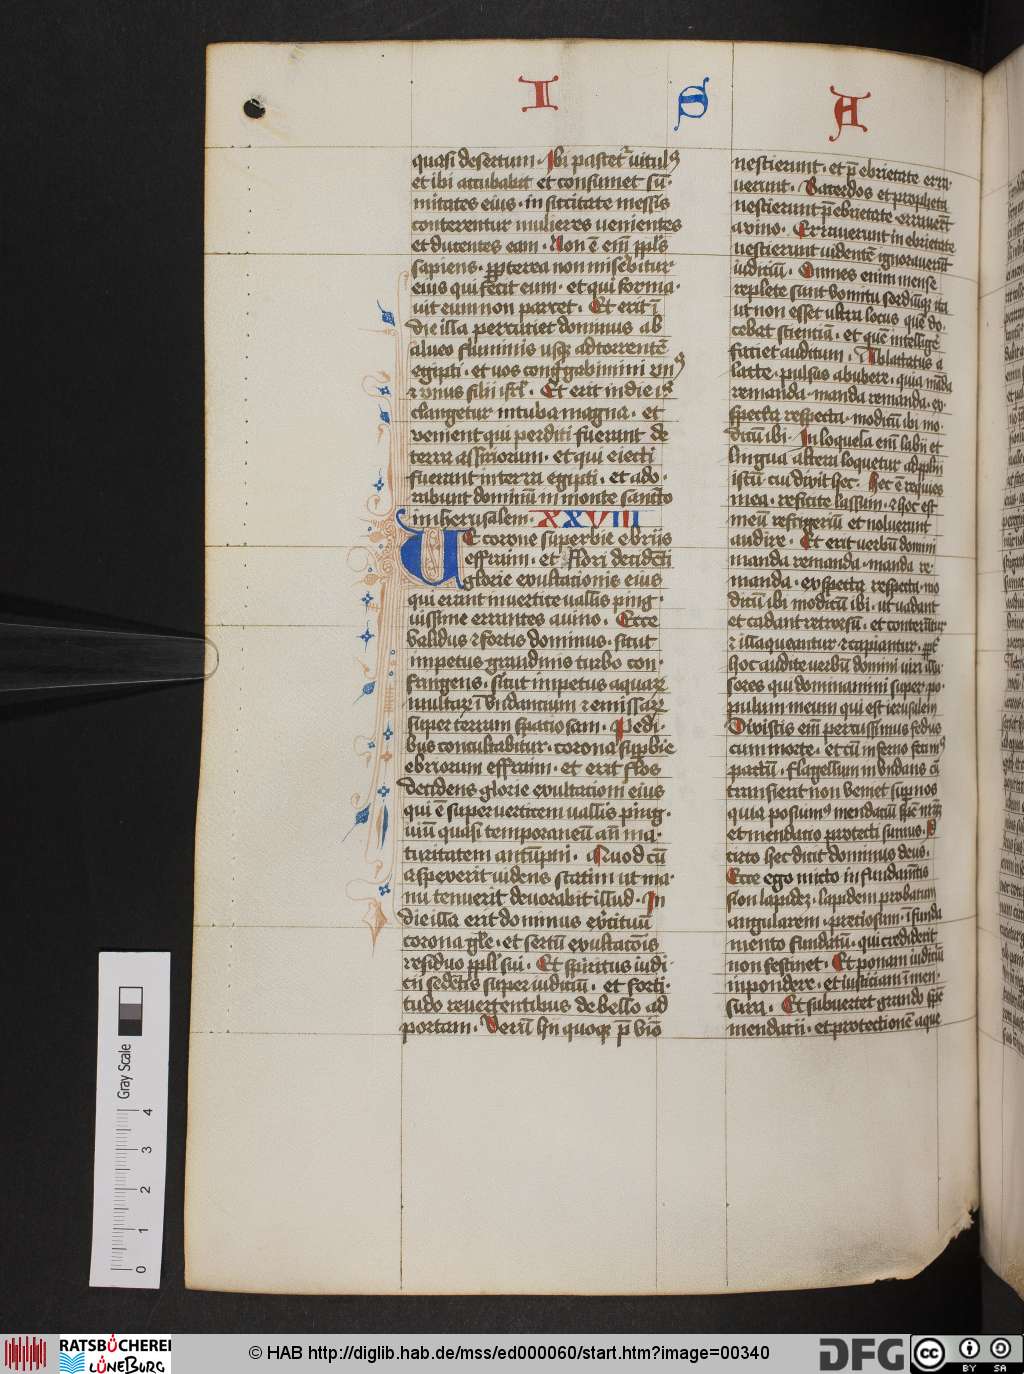 I S A
quasi desertum. Ibi pascetᷣ uitulꝰ
et ibi accubabit et consumet sū-
mitates eius. in siccitate messis
conterentur mulieres uenientes
et ducentes eam. Non ē em̄ ppl̄s
sapiens. ꝓpterea non misebitur
eius qui fecit eum. et qui forma-
uit eum non parcet. Et erit ī
die illa percutiet dominus ab
alueo fluminis usqꝫ ad torrentē
egipti. et uos cong̅gabimini vnꝰ
⁊ vnus filii isrl̄. Et erit in die il̄
clangetur in tuba magna. et
venient qui perditi fuerant de
terra assiriorum. et qui eiecti
fuerant in terra egipti. et ado-
rabunt dominū in monte sancto
in iherusalem. XXVIII
Ue corone superbie ebriis
effraim. et flori decidēti
glorie exultationis eius
qui erant in uertice uallis ping-
uissime errantes a uino. Ecce
validus ⁊ fortis dominus. sicut
impetus grandinis turbo con-
fringens. sicut impetus aquarꝝ
multarꝝ īvndantium ⁊ emissarꝝ
super terram spatiosam. Pedi-
bus conculcabitur. corona supbie
ebriorum effraim. et erit flos
decidens glorie exultationi eius
qui ē super uerticem uallis ping-
uiū quasi temporaneū an̄ ma-
turitatem autūpni. Quod cū
aspexerit uidens statim ut ma-
nu tenuerit deuorabit illud. In
die illa erit dominus exercituū
corona gl̄e. et sertū exultatōis
residuo ppl̄i sui. Et spiritus iudi-
cii sedētis super iudiciū. et forti-
tudo reuertentibus de bello ad
portam. Verū hn̄ quoqꝫ p̄ vīo
nescierunt. et p̄ ebrietate erra-
uerunt. Sacerdos et propheta
nescierunt p̄ ebrietate erraverūt
a vino. Erraverunt in ebrietate
nescierunt uidentē ignoraverūt
iudiciū. Omnes enim mense
replete sunt vomitu sordiūqꝫ ita
ut non esset ultra locus. quē do-
cebit scientiā. et quē intelligē
faciet auditum. Ablactatus a
lacte. pulsas ab ubere. quia māda
remanda. manda remanda. ex-
specta respecta. modicū ibi mo-
dicū ibi. In loquela em̄ labii et
lingua altera loquetur ad pplm̄
istū. cui dixit hec. Hec ē requies
mea. reficite lassum. ⁊ hoc est
meū refrigeriū et noluerunt
audire. Et erit uerbū domini
manda remanda. manda re-
manda. exspecta respecta. mo
dicū ibi modicū ibi. ut uadant
et cadant retrorsū. et conterātur
⁊ illaqueantur ⁊ capiantur. ꝓpt̄
hoc audite uerbū domini viri illu-
sores qui dominamini super po-
pulum meum qui est ierusalem
Dixistis em̄ percussimus fedus
cum morte. et cū inferno fecimꝰ
pactū. Flagellum invndans cū
transierit non veniet sup nos
quia posuimꝰ mendatiū spē nr̄am
et mendatio protecti sumus. Id
circo hec dicit dominus deus.
Ecce ego mitto in fundamētis
sion lapidez. lapidem probatum
angularem. pretiosum. ī funda
mento fundatū. qui crediderit
non festinet. Et ponam iudiciū
in pondere. et iusticiam ī men-
sura. Et subuertet grando spē
mendatii. et protectionē aque
Gray Scale
0 1 2 3 4
RATSBÜCHEREI
LÜNEBURG
© HAB http://diglib.hab.de/mss/ed000060/start.htm?image=00340
DFG
cc BY SA